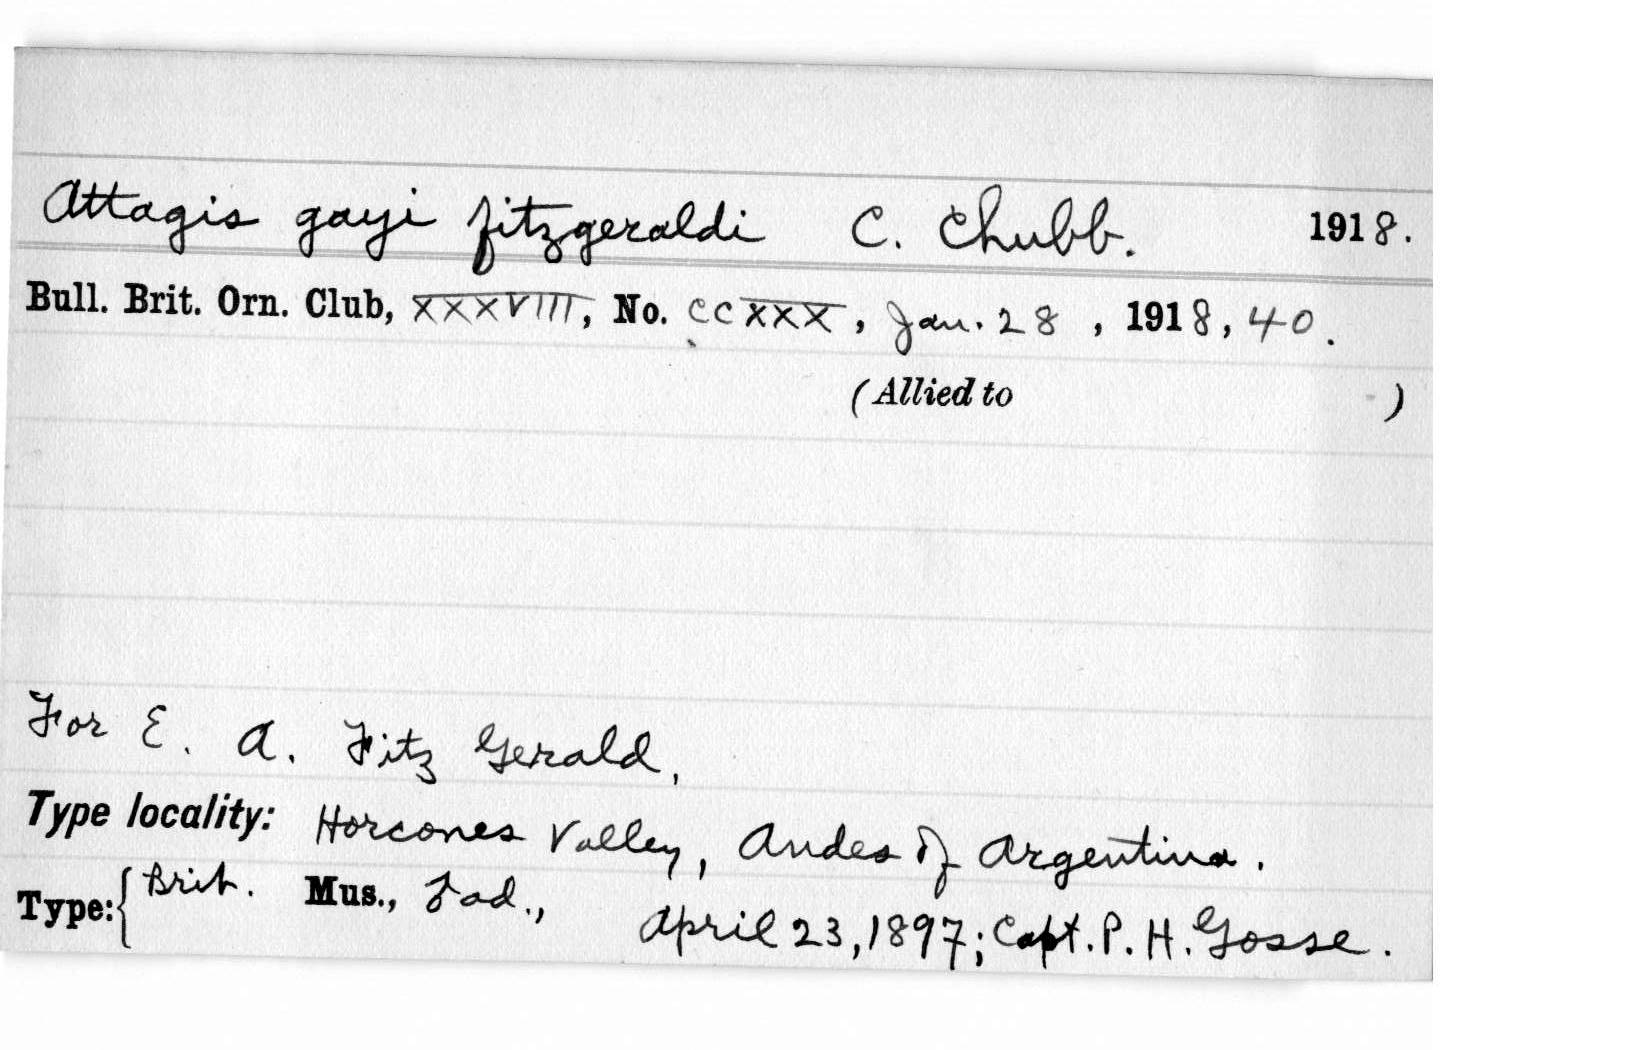 Attagis gayi fitzgeraldi C. Chubb. 1918.
Bull. Brit. Orn. Club, XXXVIII, No. CCXXX, Jan. 28, 1918, 40.
(Allied to )
For E. A. Fitz Gerald,
Type locality: Horcones Valley, Andes of Argentina.
Type: { Brit. Mus., ♂ ad., April 23, 1897; Capt. P. H. Gosse.